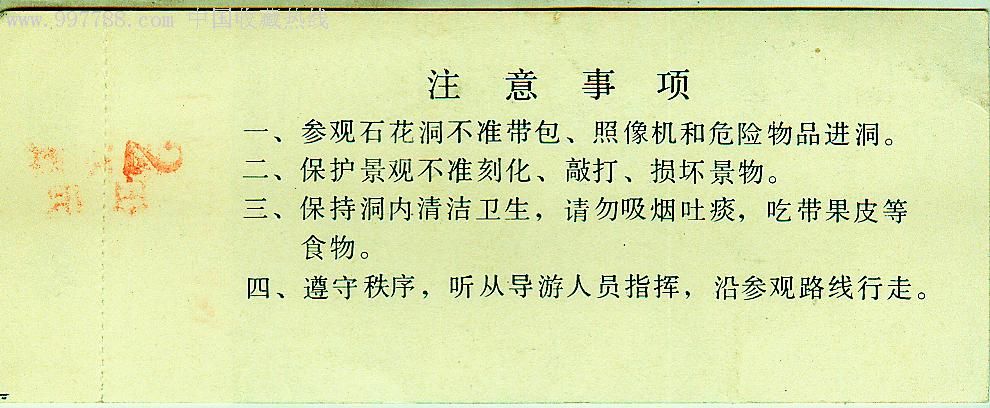 www.997788.com 中国收藏热线
注意事项
一、参观石花洞不准带包、照像机和危险物品进洞。
二、保护景观不准刻化、敲打、损坏景物。
三、保持洞内清洁卫生，请勿吸烟吐痰，吃带果皮等
食物。
四、遵守秩序，听从导游人员指挥，沿参观路线行走。